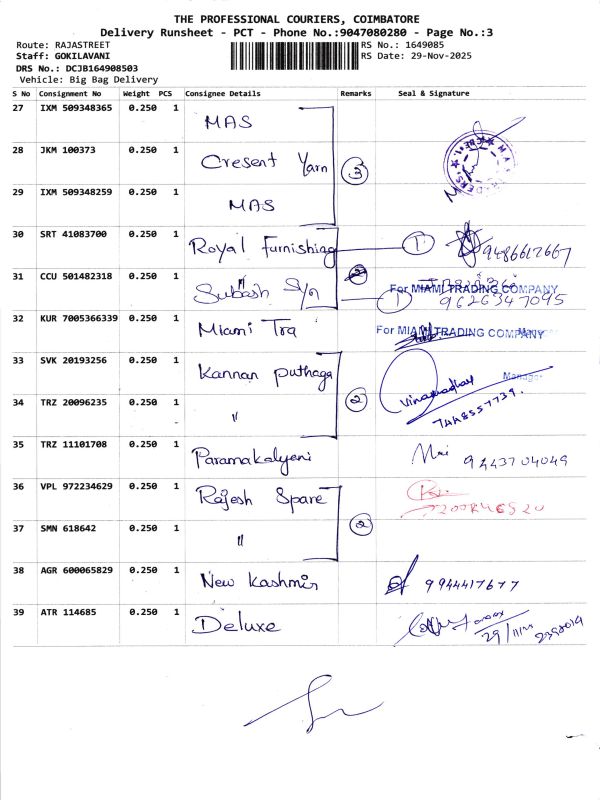 THE PROFESSIONAL COURIERS, COIMBATORE
Delivery Runsheet - PCT - Phone No.:9047080280 - Page No.:3
Route: RAJASTREET
Staff: GOKILAVANI
DRS No.: DCJB164908503
Vehicle: Big Bag Delivery
RS No.: 1649085
RS Date: 29-Nov-2025
S No Consignment No Weight PCS Consignee Details Remarks Seal & Signature
27 IXM 509348365 0.250 1 MAS
28 JKM 100373 0.250 1 Cresent Yarn 3
29 IXM 509348259 0.250 1 MAS
30 SRT 41083700 0.250 1 Royal Furnishing 1 9486612667
31 CCU 501482318 0.250 1 Subash S/n 2 1
For MIAMI TRADING COMPANY
9626347095
32 KUR 7005366339 0.250 1 Miami Tra For MIAMI TRADING COMPANY
33 SVK 20193256 0.250 1 Kannan puthaga
Manager
34 TRZ 20096235 0.250 1 " 2 7448557739.
35 TRZ 11101708 0.250 1 Paramakalyeni 9443704049
36 VPL 972234629 0.250 1 Rajesh Spare
37 SMN 618642 0.250 1 " 2
38 AGR 600065829 0.250 1 New Kashmir 9944417677
39 ATR 114685 0.250 1 Deluxe